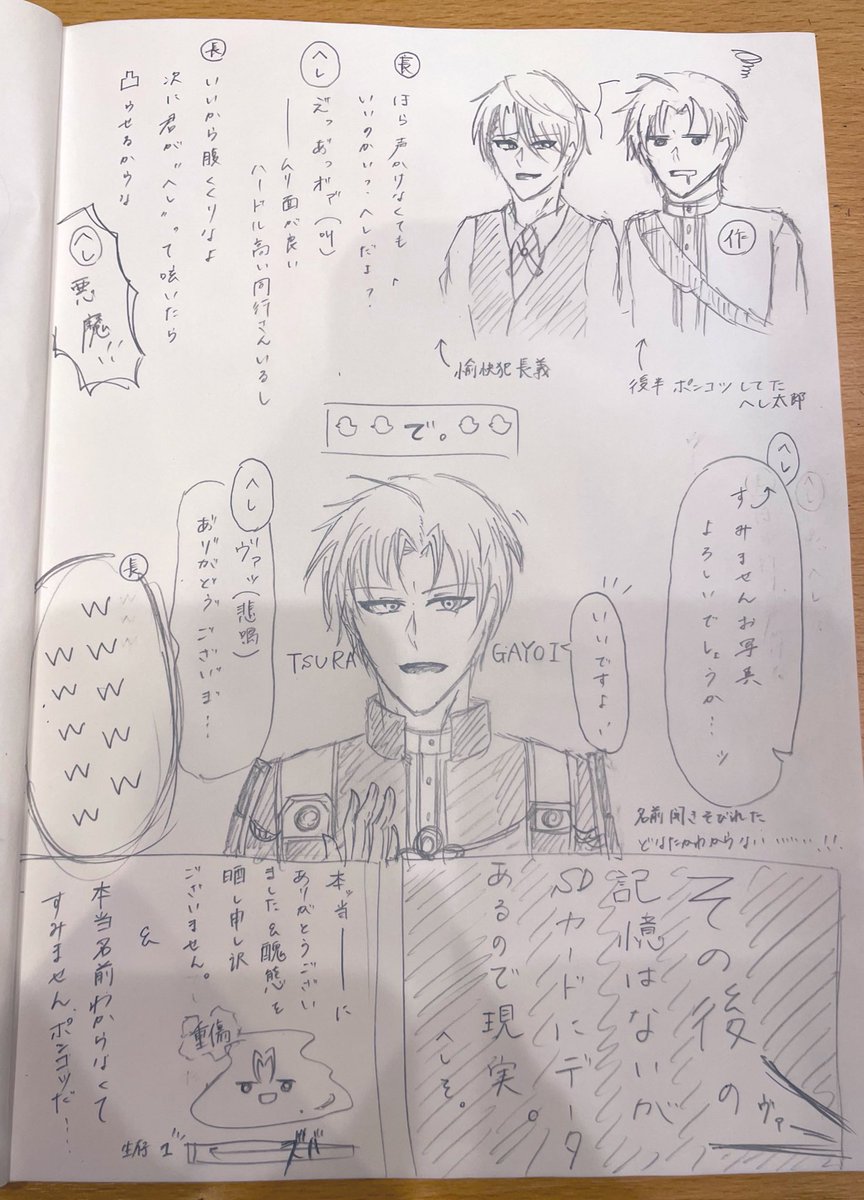 作
長
ほら声かけなくても
いいのかい?ヘレだよ?
へし
えっあっヴァ(叫)
――ムリ面が良い
ハードル高い同行さんいるし
長
いいから腹くくりなよ
次に君が"へし"って呟いたら
凸させるからな
へし
悪魔!!!
愉快犯長義
後半ポンコツしてた
へし太郎
で。
へし
すみませんお写真
よろしいでしょうか…ッ
いいですよ、
TSURA
GAYOI
名前聞きそびれた
どなたかわからない………!!!
へし
ヴァッ(悲鳴)
ありがとうございま…
長
W
W W
W W
W W
W W
W
その後の
記憶はないが
SDカードにデータ
あるので現実。
へしそ。
ヴァ
本当――に
ありがとうござい
ました&醜態を
晒し申し訳
ございません。
&
本当名前わからなくて
すみませんポンコツだ…
重傷
生存 1